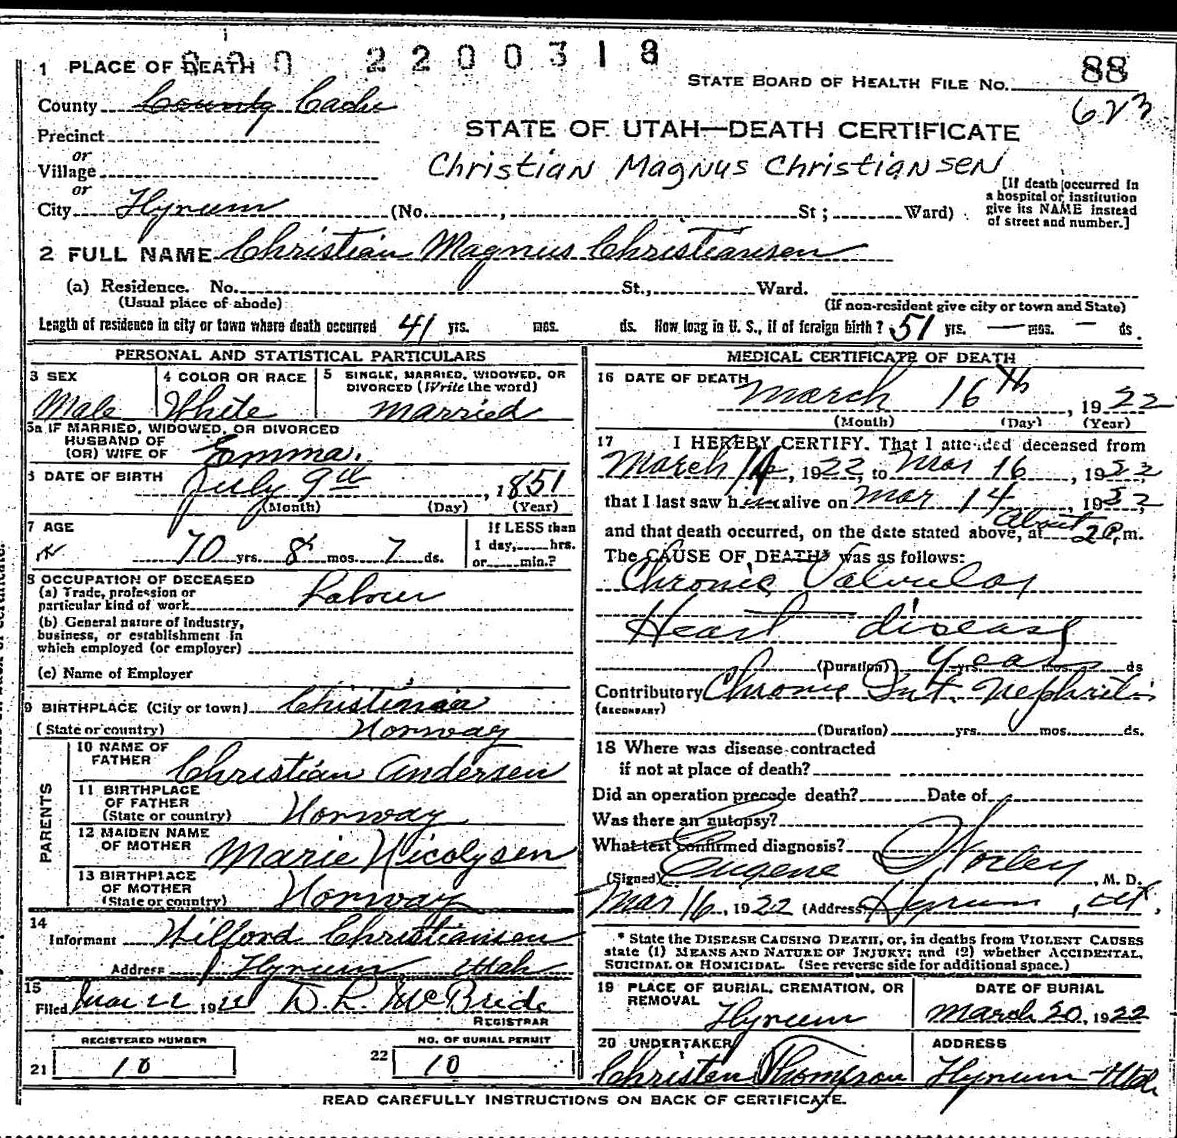 000 2200318
1 PLACE OF DEATH
STATE BOARD OF HEALTH FILE No. 88
County County Cache
623
Precinct
STATE OF UTAH—DEATH CERTIFICATE
or
Village
Christian Magnus Christiansen
or
[If death occurred in a hospital or institution give its NAME instead of street and number.]
City Hyrum (No. , St ; Ward)
2 FULL NAME Christian Magnus Christiansen
(a) Residence. No. St., Ward.
(Usual place of abode) (If non-resident give city or town and State)
Length of residence in city or town where death occurred 41 yrs. mos. ds. How long in U. S., if of foreign birth? 51 yrs. — mos. — ds.
PERSONAL AND STATISTICAL PARTICULARS
3 SEX Male
4 COLOR OR RACE White
5 SINGLE, MARRIED, WIDOWED, OR DIVORCED (Write the word)
married
5a IF MARRIED, WIDOWED, OR DIVORCED
HUSBAND OF
(OR) WIFE OF Emma.
6 DATE OF BIRTH
July 9th, 1851
(Month) (Day) (Year)
7 AGE
70 yrs. 8 mos. 7 ds.
If LESS than
1 day, hrs.
or min.?
8 OCCUPATION OF DECEASED
(a) Trade, profession or
particular kind of work Labour
(b) General nature of industry,
business, or establishment in
which employed (or employer)
(c) Name of Employer
9 BIRTHPLACE (City or town) Christinia
(State or country) Norway
PARENTS
10 NAME OF
FATHER Christian Andersen
11 BIRTHPLACE
OF FATHER
(State or country) Norway
12 MAIDEN NAME
OF MOTHER Marie Nicolysen
13 BIRTHPLACE
OF MOTHER
(State or country) Norway
14
Informant Wilford Christiansen
Address Hyrum, Utah
15
Filed Mar 22 1922 D. L. McBride
REGISTRAR
REGISTERED NUMBER
21 10
NO. OF BURIAL PERMIT
22 10
MEDICAL CERTIFICATE OF DEATH
16 DATE OF DEATH
March 16th, 1922
(Month) (Day) (Year)
17 I HEREBY CERTIFY, That I attended deceased from
March 14, 1922, to Mar 16, 1922
that I last saw him alive on Mar 14, 1922,
and that death occurred, on the date stated above, at About 2 P. m.
The CAUSE OF DEATH* was as follows:
Chronic Valvular
Heart disease
(Duration) years yrs. mos. ds
Contributory Chronic Int. Nephritis
(SECONDARY)
(Duration) yrs. mos. ds.
18 Where was disease contracted
if not at place of death?
Did an operation precede death? Date of
Was there an autopsy?
What test confirmed diagnosis?
(Signed) Eugene Worley, M. D.
Mar 16, 1922 (Address) Hyrum, Ut.
* State the DISEASE CAUSING DEATH, or, in deaths from VIOLENT CAUSES
state (1) MEANS AND NATURE OF INJURY; and (2) whether ACCIDENTAL,
SUICIDAL OR HOMICIDAL. (See reverse side for additional space.)
19 PLACE OF BURIAL, CREMATION, OR
REMOVAL
Hyrum
DATE OF BURIAL
March 20, 1922
20 UNDERTAKER
Christen Thompson
ADDRESS
Hyrum Utah
READ CAREFULLY INSTRUCTIONS ON BACK OF CERTIFICATE.